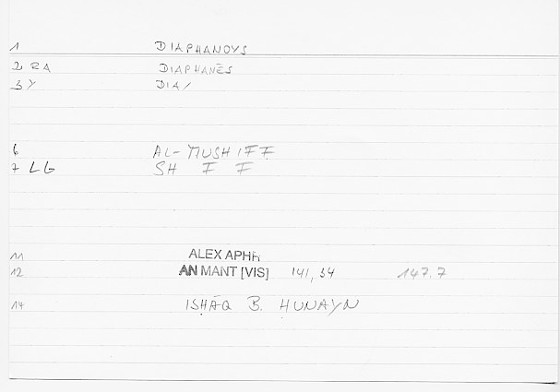 1 DIAPHANOYS
2 RA DIAPHANĒS
3 Y DIA/
6 AL-MUSHIFF
7 LG SH F F
11 ALEX APHR
12 AN MANT [VIS] 141, 34 147.7
14 ISḤĀQ B. ḤUNAYN